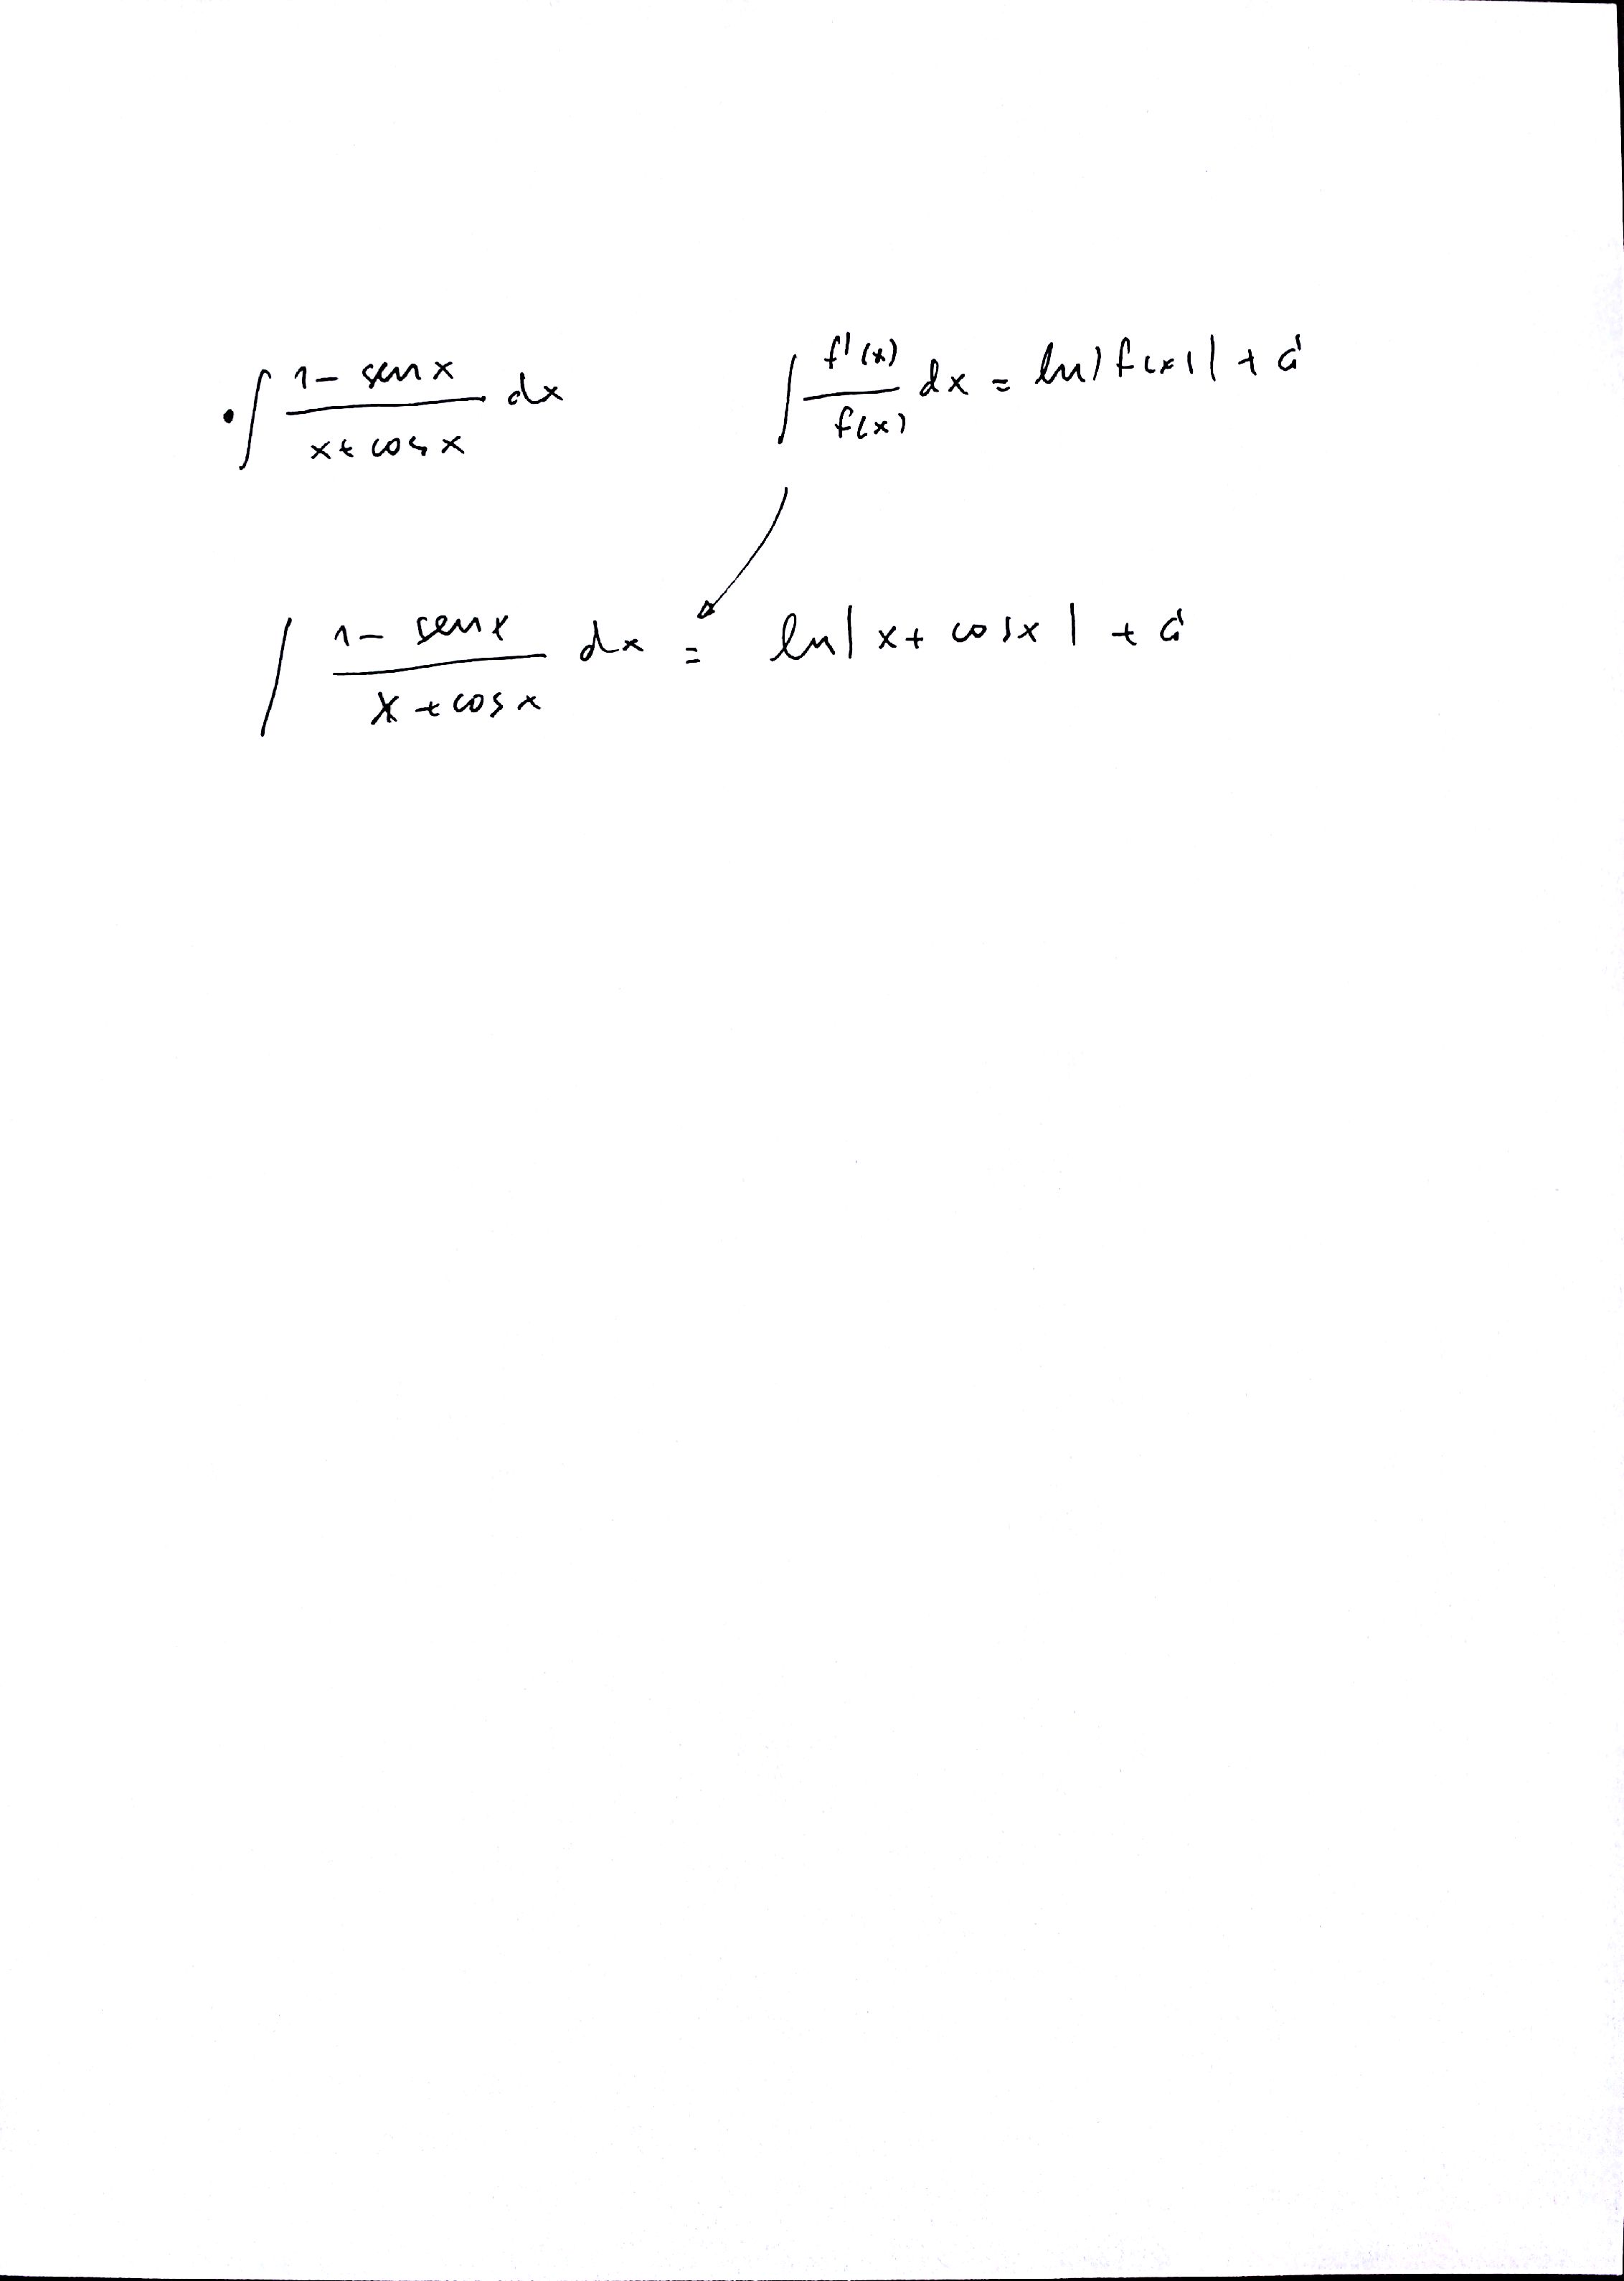 • ∫ (1 - sen x)/(x + cos x) dx    ∫ f'(x)/f(x) dx = ln|f(x)| + C
∫ (1 - sen x)/(x + cos x) dx = ln|x + cos x| + C